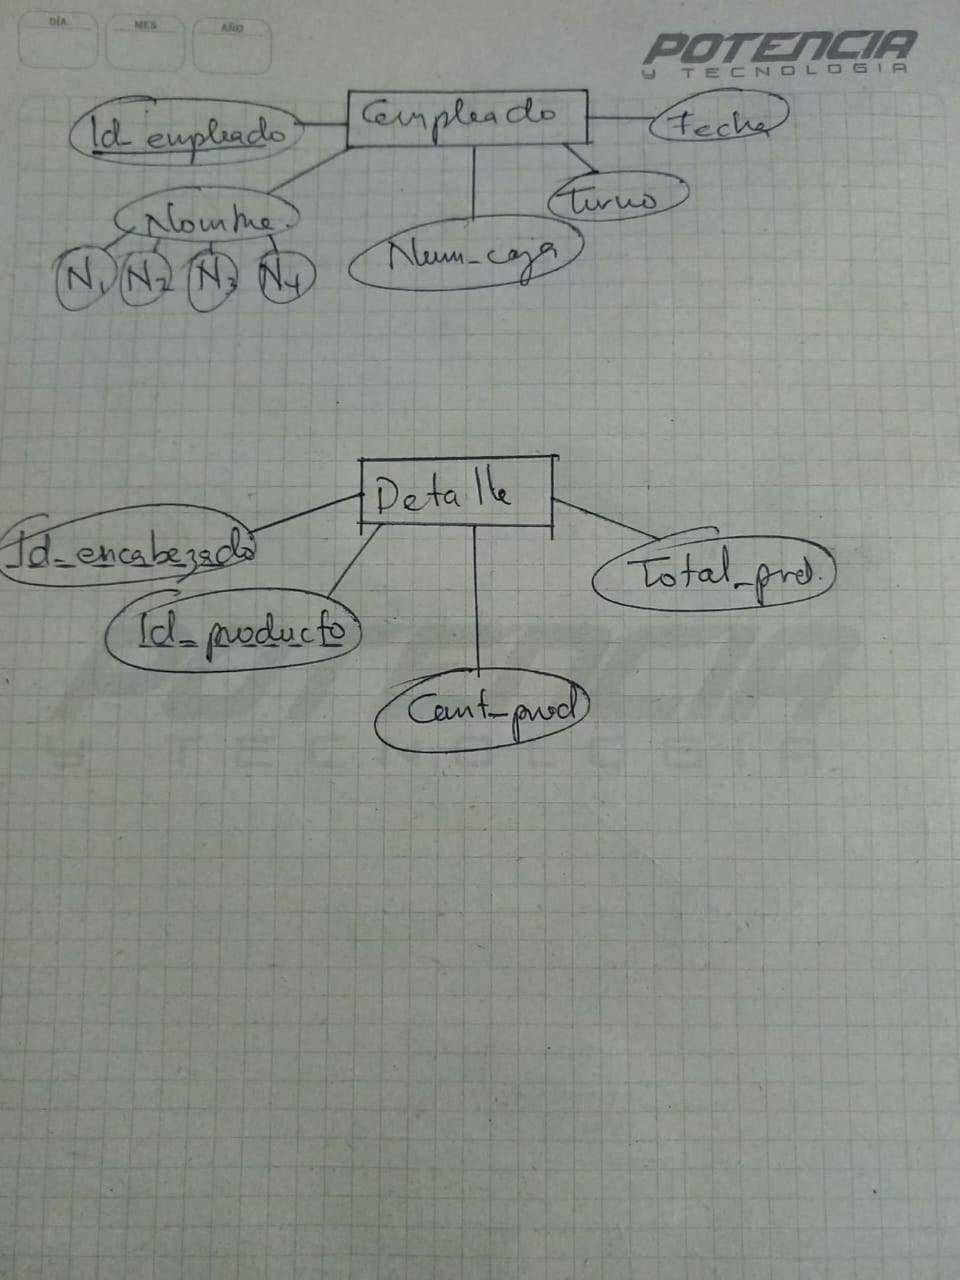 DÍA MES AÑO
POTENCIA
Y TECNOLOGIA
Id_empleado Empleado Fecha
Nombre Turno
Num_caja
N1 N2 N3 N4
Detalle
Id_encabezado
Total_prod.
Id_producto
POTENCIA
Cant_prod
Y TECNOLOGIA